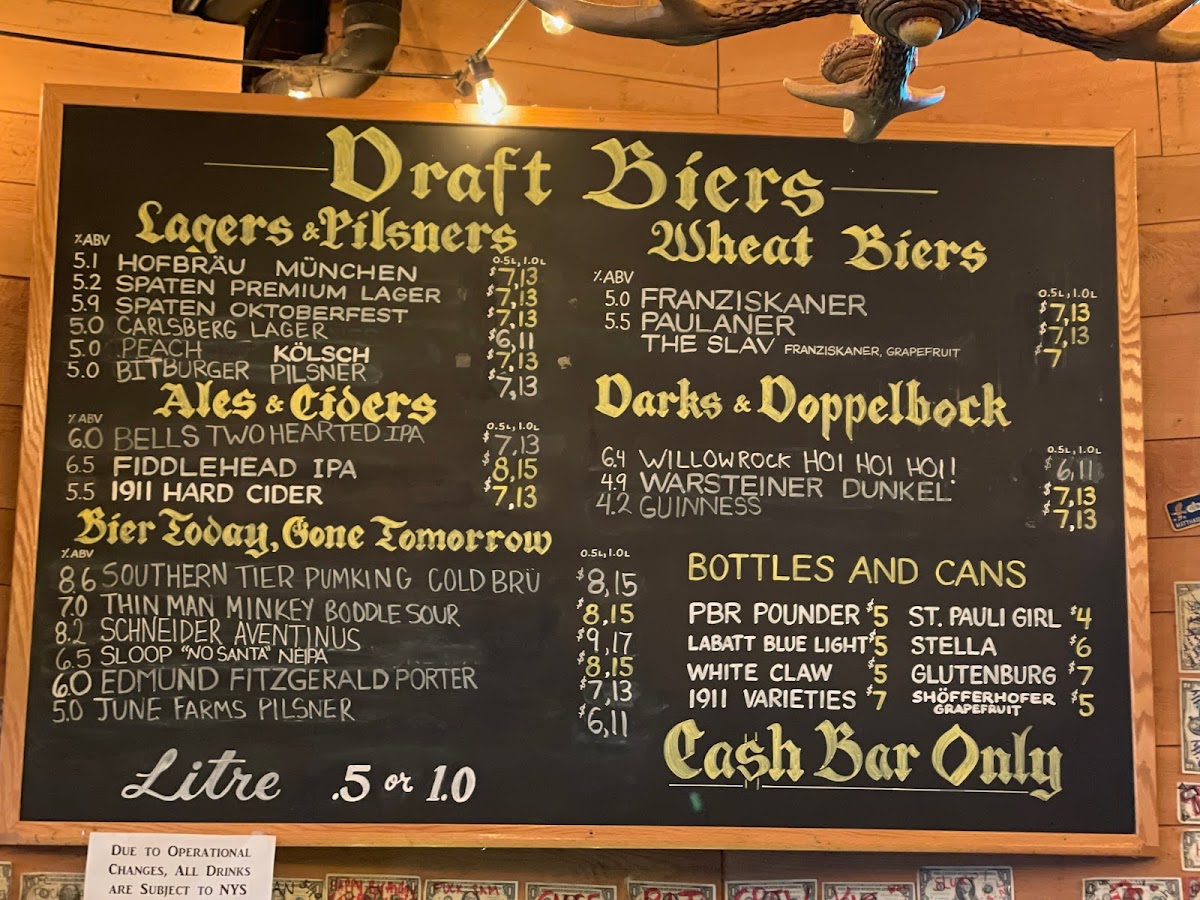 Draft Biers
Lagers & Pilsners
%ABV 0.5L, 1.0L
5.1 HOFBRÄU MÜNCHEN $7,13
5.2 SPATEN PREMIUM LAGER $7,13
5.9 SPATEN OKTOBERFEST $7,13
5.0 CARLSBERG LAGER $6,11
5.0 PEACH KÖLSCH $7,13
5.0 BITBURGER PILSNER $7,13
Ales & Ciders
%ABV 0.5L, 1.0L
6.0 BELLS TWO HEARTED IPA $7,13
6.5 FIDDLEHEAD IPA $8,15
5.5 1911 HARD CIDER $7,13
Bier Today, Gone Tomorrow
%ABV 0.5L, 1.0L
8.6 SOUTHERN TIER PUMKING COLD BRÜ $8,15
7.0 THIN MAN MINKEY BODDLE SOUR $8,15
8.2 SCHNEIDER AVENTINUS $9,17
6.5 SLOOP "NO SANTA" NEIPA $8,15
6.0 EDMUND FITZGERALD PORTER $7,13
5.0 JUNE FARMS PILSNER $6,11
Litre .5 or 1.0
Wheat Biers
%ABV 0.5L, 1.0L
5.0 FRANZISKANER $7,13
5.5 PAULANER $7,13
THE SLAV FRANZISKANER, GRAPEFRUIT $7
Darks & Doppelbock
0.5L, 1.0L
6.4 WILLOWROCK HOI HOI HOI! $6,11
4.9 WARSTEINER DUNKEL $7,13
4.2 GUINNESS $7,13
BOTTLES AND CANS
PBR POUNDER $5 ST. PAULI GIRL $4
LABATT BLUE LIGHT $5 STELLA $6
WHITE CLAW $5 GLUTENBURG $7
1911 VARIETIES $7 SHÖFFERHOFER GRAPEFRUIT $5
Cash Bar Only
DUE TO OPERATIONAL
CHANGES, ALL DRINKS
ARE SUBJECT TO NYS